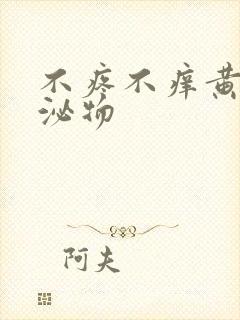 不疼不痒黄
泌物
阿夫